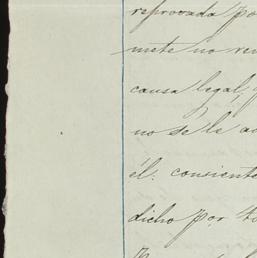 reprovada po
mete no ren
causa legal, y
no se le a
él: consiente
dicho por t